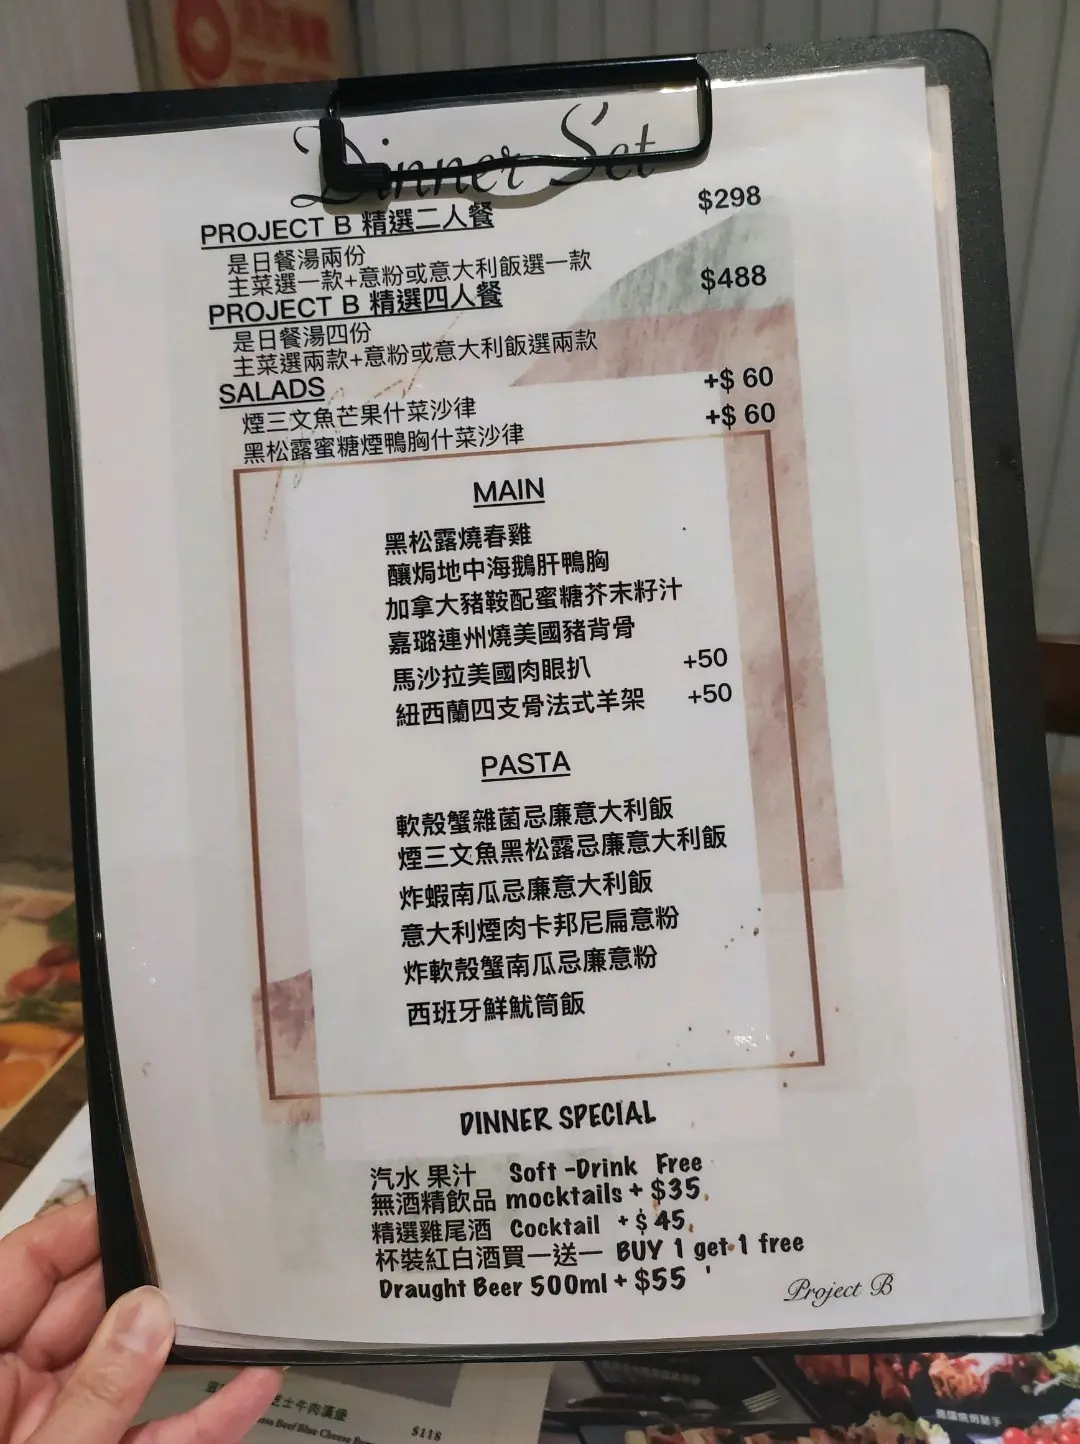 Dinner Set
PROJECT B 精選二人餐 $298
是日餐湯兩份
主菜選一款+意粉或意大利飯選一款
PROJECT B 精選四人餐 $488
是日餐湯四份
主菜選兩款+意粉或意大利飯選兩款
SALADS
煙三文魚芒果什菜沙律 +$ 60
黑松露蜜糖煙鴨胸什菜沙律 +$ 60
MAIN
黑松露燒春雞
釀焗地中海鵝肝鴨胸
加拿大豬鞍配蜜糖芥末籽汁
嘉璐連州燒美國豬背骨
馬沙拉美國肉眼扒 +50
紐西蘭四支骨法式羊架 +50
PASTA
軟殼蟹雜菌忌廉意大利飯
煙三文魚黑松露忌廉意大利飯
炸蝦南瓜忌廉意大利飯
意大利煙肉卡邦尼扁意粉
炸軟殼蟹南瓜忌廉意粉
西班牙鮮魷筒飯
DINNER SPECIAL
汽水 果汁 Soft -Drink Free
無酒精飲品 mocktails + $35
精選雞尾酒 Cocktail + $ 45
杯裝紅白酒買一送一 BUY 1 get 1 free
Draught Beer 500ml + $55
Project B
芝士牛肉漢堡
Beef Blue Cheese
$118